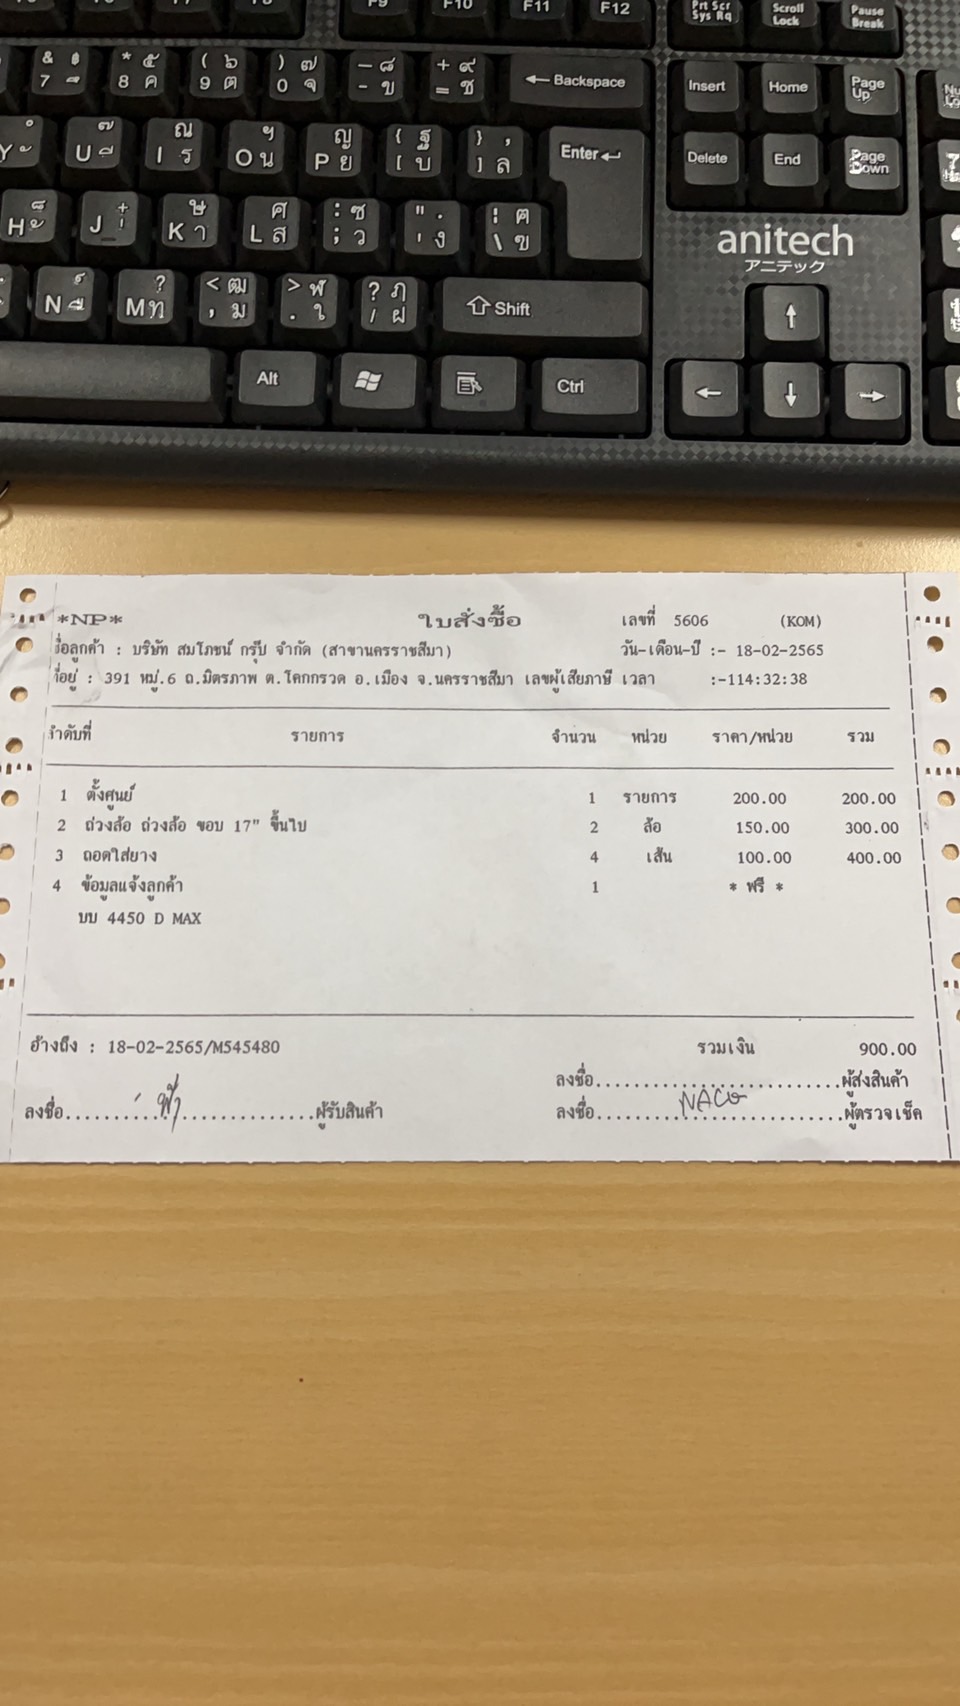 F9 F10 F11 F12 Prt Scr Sys Rq Scroll Lock Pause Break
& ฿ 7 ึ * ๕ 8 ค ( ๖ 9 ต ) ๗ 0 จ — ๘ - ข + ๙ = ช ← Backspace Insert Home Page Up
Y ั U ี ๗ I ร ณ O น ฯ P ย ญ { ฐ [ บ } , ] ล Enter Delete End Page Down
H ้ ็ J ่ + K า ษ L ส ศ : ซ ; ว " . ' ง ¦ ฅ \ ข
anitech
アニテック
N ื ์ M ท ? < ฒ , ม > ฬ . ใ ? ฦ / ฝ Shift ↑
Alt Ctrl ← ↓ →
*NP* ใบสั่งซื้อ เลขที่ 5606 (KOM)
ชื่อลูกค้า : บริษัท สมโภชน์ กรุ๊ป จำกัด (สาขานครราชสีมา) วัน-เดือน-ปี :- 18-02-2565
ที่อยู่ : 391 หมู่.6 ถ.มิตรภาพ ต.โคกกรวด อ.เมือง จ.นครราชสีมา เลขผู้เสียภาษี เวลา :-114:32:38
ลำดับที่ รายการ จำนวน หน่วย ราคา/หน่วย รวม
1 ตั้งศูนย์ 1 รายการ 200.00 200.00
2 ถ่วงล้อ ถ่วงล้อ ขอบ 17" ขึ้นไป 2 ล้อ 150.00 300.00
3 ถอดใส่ยาง 4 เส้น 100.00 400.00
4 ข้อมูลแจ้งลูกค้า 1 * ฟรี *
บบ 4450 D MAX
อ้างถึง : 18-02-2565/M545480 รวมเงิน 900.00
ลงชื่อ..................................ผู้ส่งสินค้า
ลงชื่อ..................................ผู้รับสินค้า ลงชื่อ..................................ผู้ตรวจเช็ค